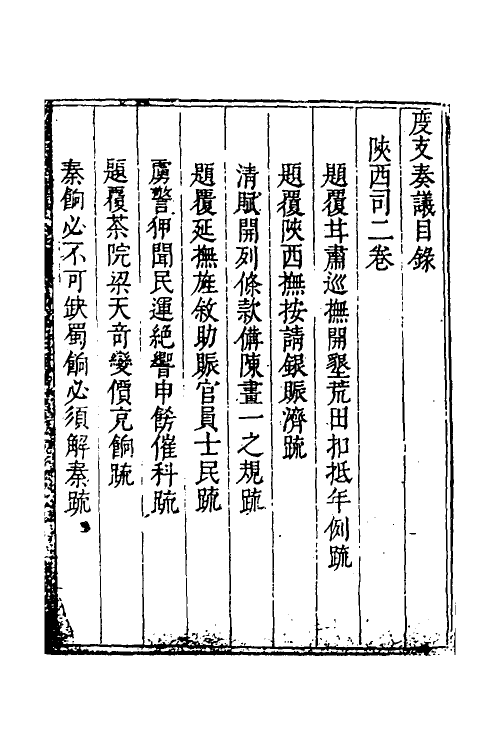 度支奏議目錄
陝西司二卷
題覆甘肅巡撫開墾荒田扣抵年例疏
題覆陝西撫按請銀賑濟疏
清賦開列條款備陳畫一之規疏
題覆延撫旌敘助賑官員士民疏
虜警狎聞民運絶響申飭催科疏
題覆茶院梁天竒變價充餉疏
秦餉必不可缺蜀餉必須解秦疏